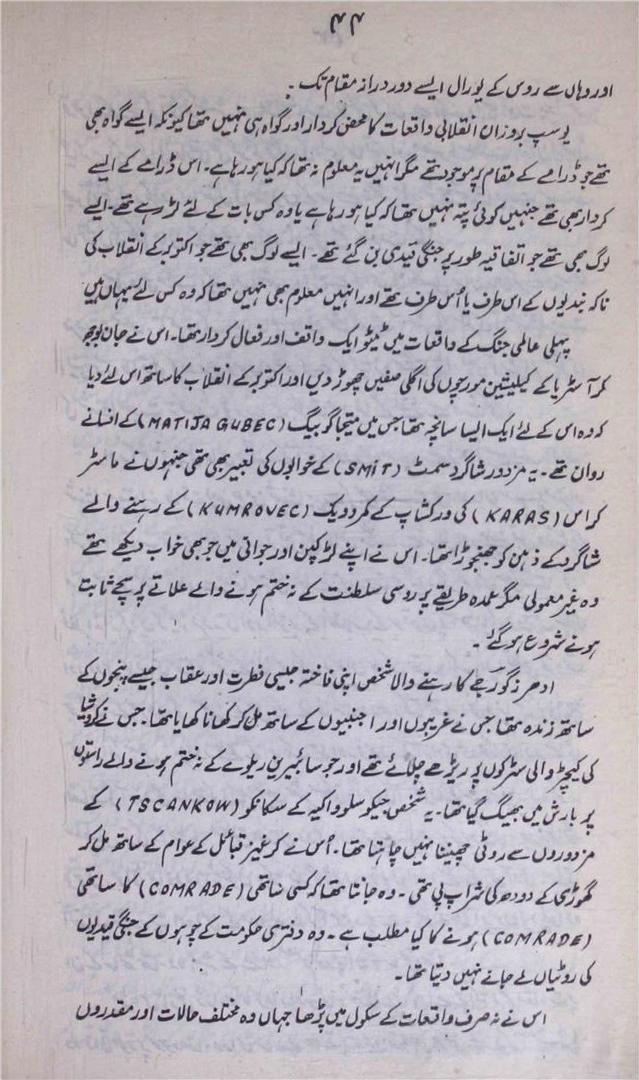 ۴۴
اور وہاں سے روس کے یورال ایسے دور دراز مقام تک ۔
یوسپ بروز ان انقلابی واقعات کا محض کردار اور گواہ ہی نہیں تھا کیونکہ ایسے گواہ بھی
تھے جو ڈرامے کے مقام پر موجود تھے مگر انہیں یہ معلوم نہ تھا کہ کیا ہو رہا ہے۔ اس ڈرامے کے ایسے
کردار بھی تھے جنہیں کوئی پتہ نہیں تھا کہ کیا ہو رہا ہے یا وہ کس بات کے لئے لڑ رہے تھے۔ ایسے
لوگ بھی تھے جو اتفاقیہ طور پر جنگی قیدی بن گئے تھے ۔ ایسے لوگ بھی تھے جو اکتوبر کے انقلاب کی
ناکہ بندیوں کے اس طرف یا اُس طرف تھے اور انہیں معلوم بھی نہیں تھا کہ وہ کس لئے یہاں ہیں
پہلی عالمی جنگ کے واقعات میں ٹیٹو ایک واقف اور فعال کردار تھا۔ اس نے جان بوجھ
کر آسٹریا کے گیلیشین مورچوں کی اگلی صفیں چھوڑ دیں اور اکتوبر کے انقلاب کا ساتھ اس لئے دیا
کہ وہ اس کے لئے ایک ایسا سانچہ تھا جس میں میتجا گوبیگ (MATIJA GUBEC) کے افسانے
رواں تھے ۔ یہ مزدور شاگرد سمٹ (SMIT) کے خوابوں کی تعبیر بھی تھی جنہوں نے ماسٹر
کراس (KARAS) کی ورکشاپ کے کمرودیک (KUMROVEC) کے رہنے والے
شاگرد کے ذہن کو جھنجوڑا تھا۔ اس نے اپنے لڑکپن اور جوانی میں جو بھی خواب دیکھے تھے
وہ غیر معمولی مگر عمدہ طریقے پر روسی سلطنت کے نہ ختم ہونے والے علاقے پر سچے ثابت
ہونے شروع ہو گئے ۔
ادھر زگورجے کا رہنے والا شخص اپنی فاختہ جیسی فطرت اور عقاب جیسے پنجوں کے
ساتھ زندہ تھا جس نے غریبوں اور اجنبیوں کے ساتھ مل کر کھانا کھایا تھا۔ جس نے کروشیا
کی کیچڑ والی سڑکوں پر ریڑھے چلائے تھے اور جو سائبیرین ریلوے کے نہ ختم ہونے والے راستوں
پر بارش میں بھیگ گیا تھا۔ یہ شخص چیکوسلوواکیہ کے سکانکو (TSCANKOW) کے
مزدوروں سے روٹی چھیننا نہیں چاہتا تھا۔ اُس نے کرغیز قبائل کے عوام کے ساتھ مل کر
گھوڑی کے دودھ کی شراب پی تھی ۔ وہ جانتا تھا کہ کسی ساتھی (COMRADE) کا ساتھی
(COMRADE) ہونے کا کیا مطلب ہے ۔ وہ دفتری حکومت کے چوہوں کے جنگی قیدیوں
کی روٹیاں لے جانے نہیں دیتا تھا۔
اس نے نہ صرف واقعات کے سکول میں پڑھا جہاں وہ مختلف حالات اور مقدروں